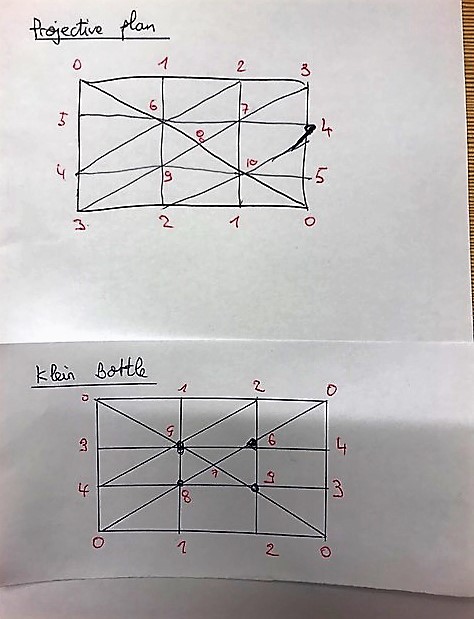 Projective plan
0 1 2 3
5 6 7 4
8
4 9 10 5
3 2 1 0
Klein Bottle
0 1 2 0
3 5 6 4
7
4 8 9 3
0 1 2 0